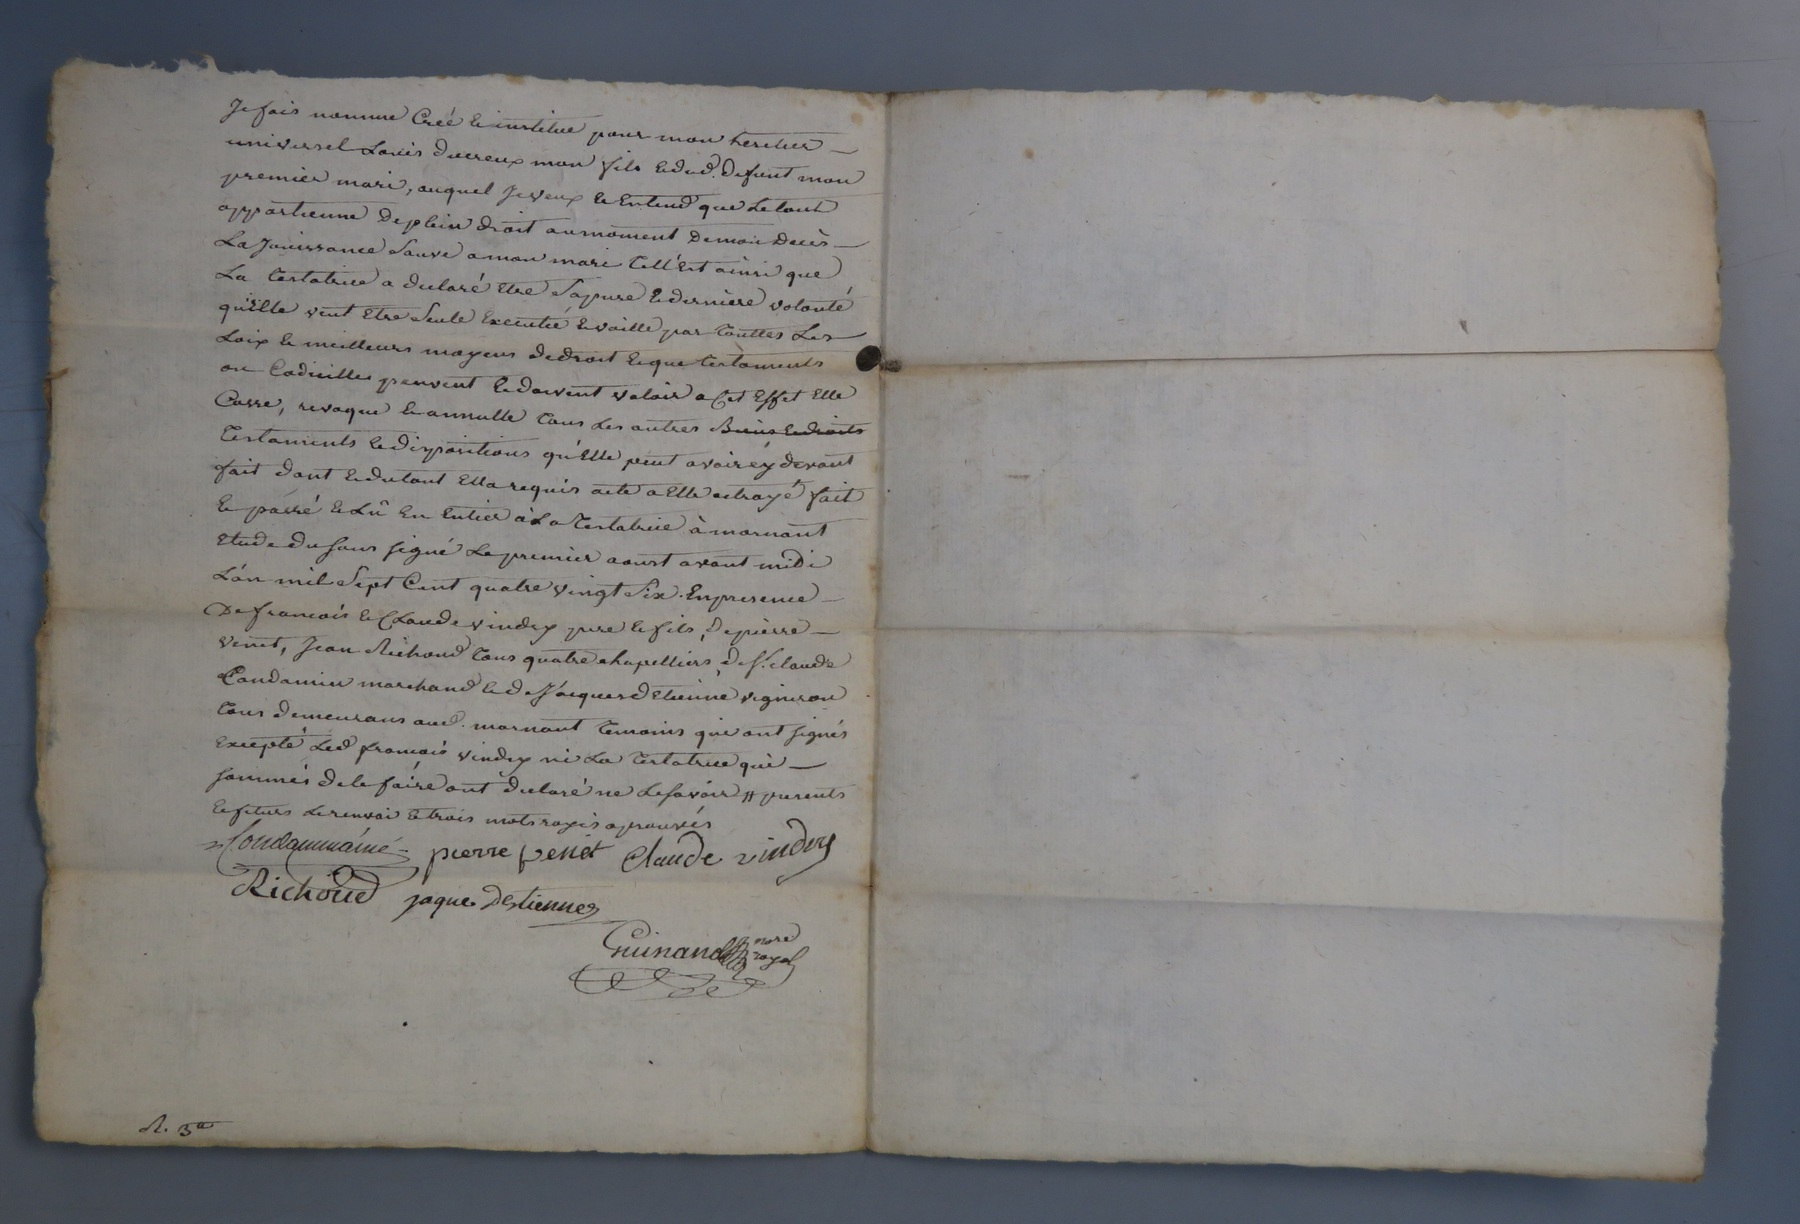 Je fais nomme Créé & institue pour mon heritier
universel Louis ducreux mon fils & dud. defunt mon
premier mari, auquel Je veux & Entend que le tout
appartienne De plein droit au moment De mon Decès
La Jouissance Sauve a mon mari Tell'Est ainsi que
La testatrice a declaré Etre Sa pure & derniere volonté
qu'Elle veut Etre Seule Executée & vaille par Touttes Les
Loix & meilleurs moyens de droit & que testaments
ou Codicilles peuvent & doivent valoir a Cet Effet Elle
Casse, revoque & annulle Tous Les autres Biens & droits
Testaments & dispositions qu'Elle peut avoir cy devant
fait dont & du tout Ella requis acte a Elle octroyé fait
& passé & Lû En Entier à La Testatrice à mornant
Etude du sous signé Le premier aoust avant midi
L'an mil Sept Cent quatre vingt Six. En presence
De francois & Claude vindry pere & fils, de pierre
venet, Jean Richoud Tous quatre chapelliers, de Sr. claude
Condamin marchand & de Jacques d'Etienne vigneron
Tous demeurans aud. mornant Temoins qui ont signés
Excepté Led francois vindry ni La Testatrice qui
sommés de le faire ont declaré ne Le savoir //
Le renvoi & trois mots rayés aprouvés
pierre venet Claude vindry
Richoud jaque destiennes
Guinand nore
royal
3